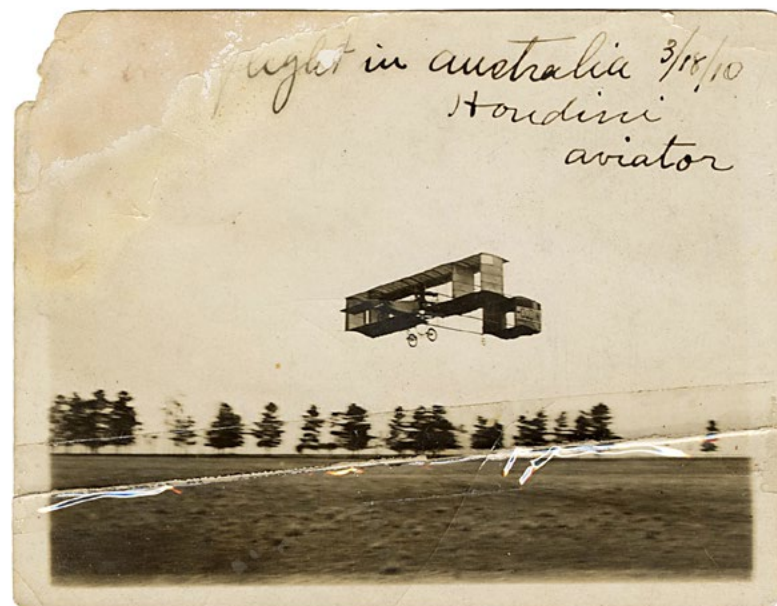 flight in australia 3/18/10
Houdini
aviator